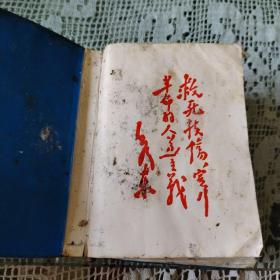 救死扶傷，实行
革命的人道主义
毛泽东